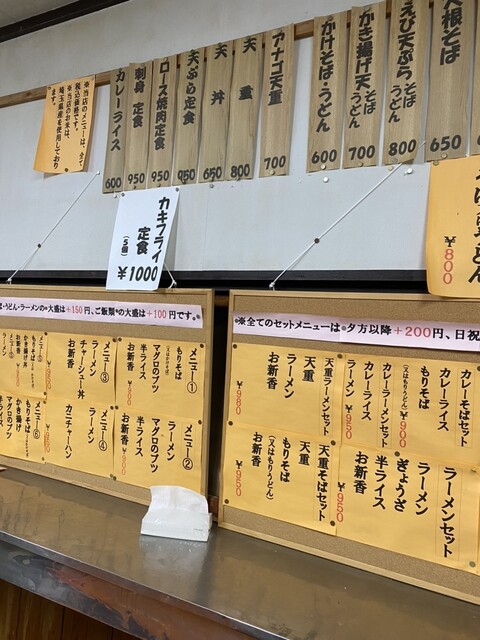 大根そば
650
えび天ぷらそば
うどん
800
かき揚げ天そば
うどん
700
かけそば・うどん
600
アナゴ天重
700
天重
800
天丼
650
天ぷら定食
950
ロース焼肉定食
950
刺身定食
950
カレーライス
600
※当店のメニューは、全て
税込価格です。
※当店のお米は、
埼玉県産を使用しており
ます。
カキフライ
定食
(5個)
¥1000
¥800
うどん・ラーメンの大盛は+150円、ご飯類の大盛は+100円です。
※全てのセットメニューは夕方以降+200円、日祝
メニュー①
もりそば
マグロのブツ
半ライス
お新香
メニュー②
ラーメン
マグロのブツ
半ライス
お新香
メニュー③
ラーメン
チャーシュー丼
お新香
メニュー④
ラーメン
カニチャーハン
もりそば
かき揚げ丼
お新香
メニュー⑥
もりそば
かき揚げ
マグロのブツ
半ライス
カレーそばセット
カレーライス
もりそば
(又はもりうどん)
¥900
カレーラーメンセット
カレーライス
ラーメン
¥950
天重ラーメンセット
天重
ラーメン
お新香
¥980
ラーメンセット
ラーメン
ぎょうざ
半ライス
お新香
¥950
天重そばセット
天重
もりそば
(又はもりうどん)
お新香
¥950